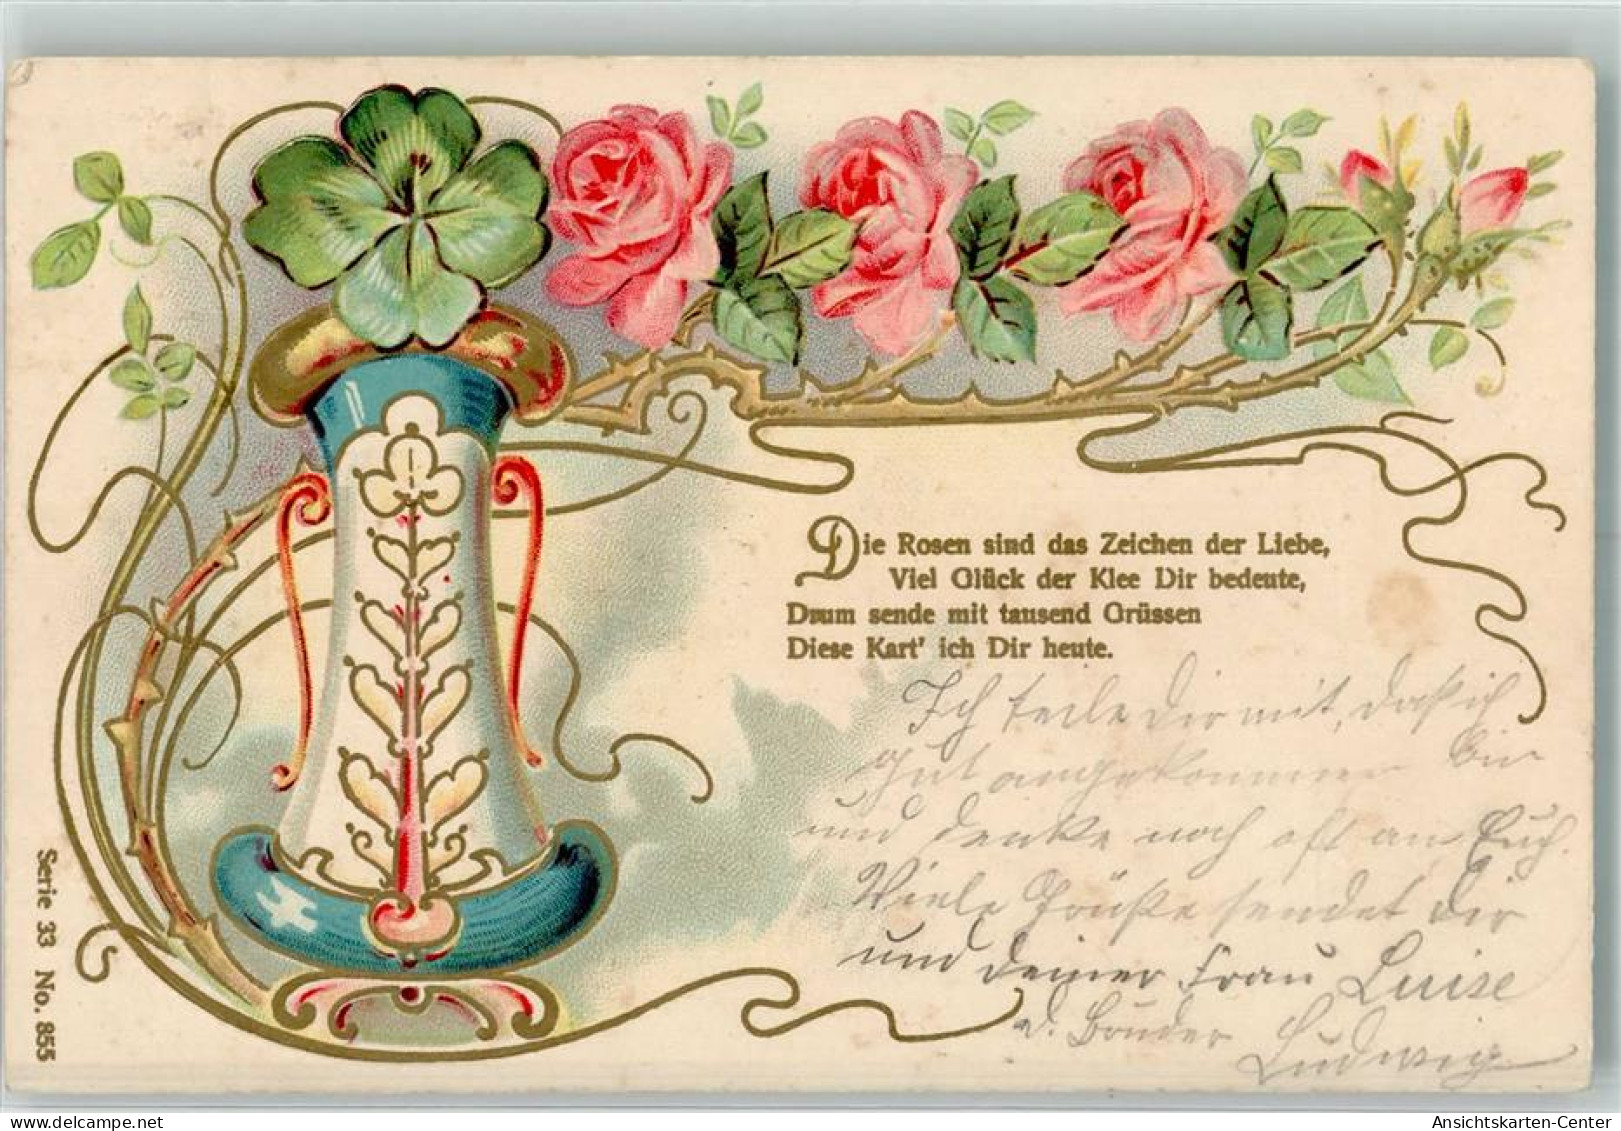 Die Rosen sind das Zeichen der Liebe,
Viel Glück der Klee Dir bedeute,
Drum sende mit tausend Grüssen
Diese Kart' ich Dir heute.
Ich teile Dir mit, daß ich
gut angekommen bin
und denke noch oft an Euch.
Viele Grüße sendet Dir
und deiner Frau Luise
d. Bruder Ludwig
Serie 33 No. 855
Ansichtskarten-Center